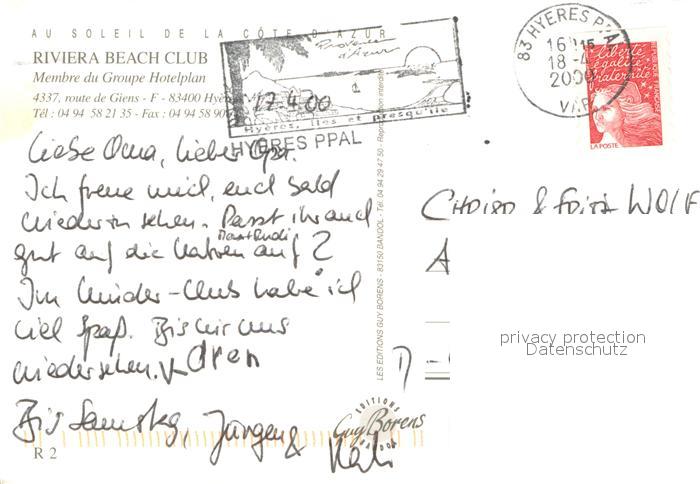 AU SOLEIL DE LA CÔTE D'AZUR
RIVIERA BEACH CLUB
Membre du Groupe Hotelplan
4337, route de Giens - F - 83400 Hyè
Tél : 04 94 58 21 35 - Fax : 04 94 58 90
Provence
d'Azur
17.4.00
Hyères, îles et presqu'île
HYERES PPAL
83 HYERES PPAL
16H15
18-4
2000
VAR
liberté
égalité
fraternité
LA POSTE
Liebe Oma, lieber Opa.
Ich freue mich, euch bald
wiederzusehen. Passt ihr auch
gut auf die Katzen auf?
Im Kinder-Club habe ich
viel Spaß. Bis wir uns
wiedersehen.
Bis Samstag, Jürgen &
R 2
LES EDITIONS GUY BORENS - 83150 BANDOL - Tél. 04 94 29 47 50 - Reproduction interdite
EDITIONS
Guy Borens
BANDOL
& WOLF
A
D-
privacy protection
Datenschutz